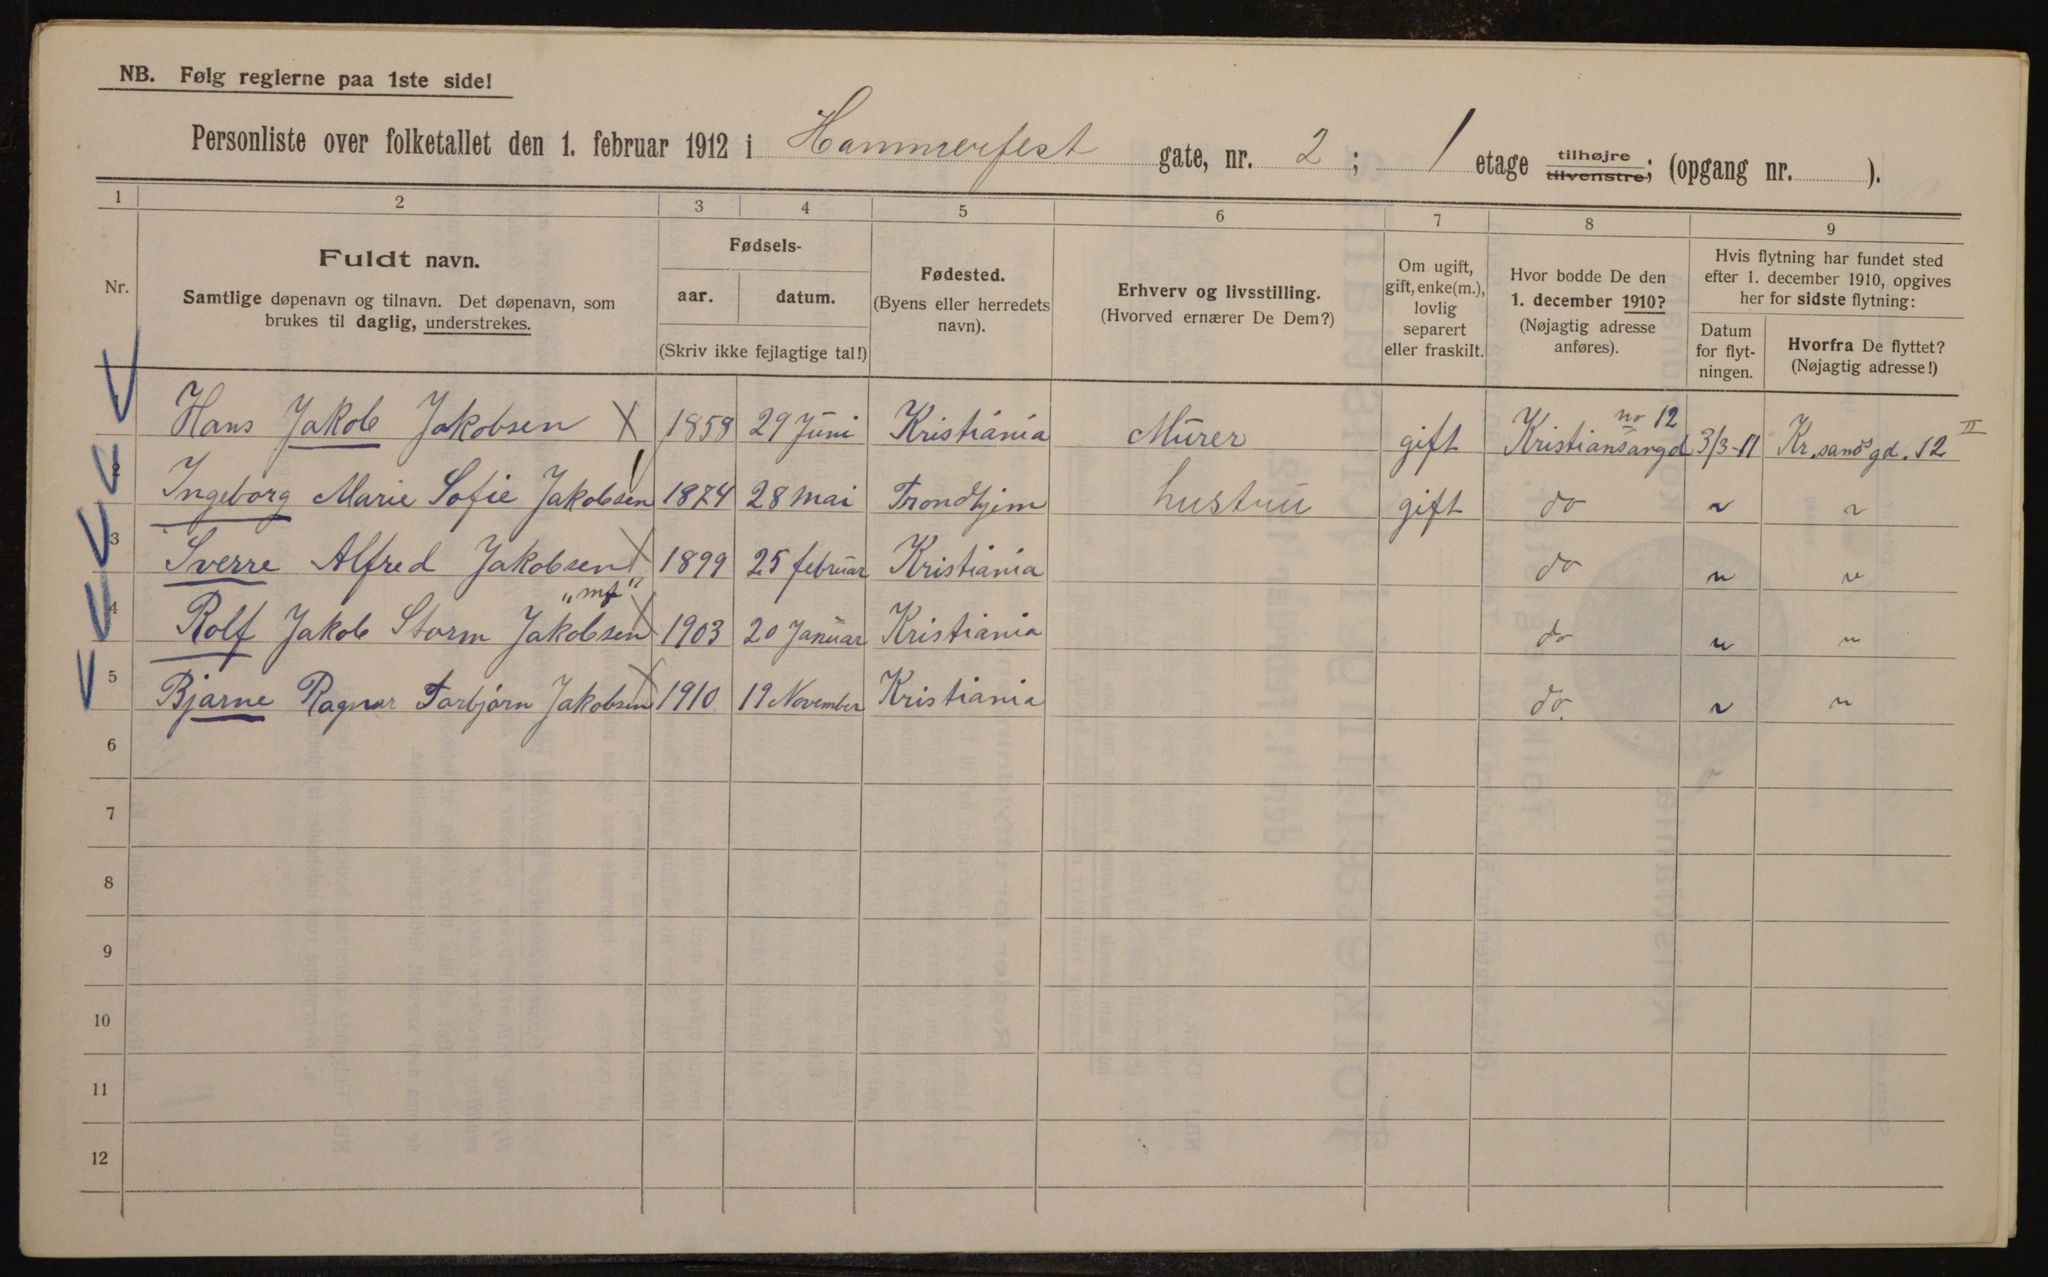 NB. Følg reglerne paa 1ste side!
Personliste over folketallet den 1. februar 1912 i Hammerfest gate, nr. 2; 1 etage tilhøjre tilvenstre; (opgang nr. ).
1 2 3 4 5 6 7 8 9
Nr.
Fuldt navn.
Samtlige døpenavn og tilnavn. Det døpenavn, som
brukes til daglig, understrekes.
Fødsels-
aar. datum.
(Skriv ikke fejlagtige tal!)
Fødested.
(Byens eller herredets
navn).
Erhverv og livsstilling.
(Hvorved ernærer De Dem?)
Om ugift,
gift, enke(m.),
lovlig
separert
eller fraskilt.
Hvor bodde De den
1. december 1910?
(Nøjagtig adresse
anføres).
Hvis flytning har fundet sted
efter 1. december 1910, opgives
her for sidste flytning:
Datum
for flyt-
ningen.
Hvorfra De flyttet?
(Nøjagtig adresse!)
no 12
1 Hans Jakob Jakobsen X 1858 29 Juni Kristiania Murer gift Kristiansangd 3/3-11 Kr.sandsgd. 12 II
2 Ingeborg Marie Sofie Jakobsen 1874 28 mai Trondhjem hustru gift do " "
3 Sverre Alfred Jakobsen X 1899 25 februar Kristiania do " "
"mf"
4 Rolf Jakob Storm Jakobsen X 1903 20 Januar Kristiania do " "
5 Bjarne Ragnar Torbjørn Jakobsen X 1910 19 November Kristiania do. " "
6
7
8
9
10
11
12